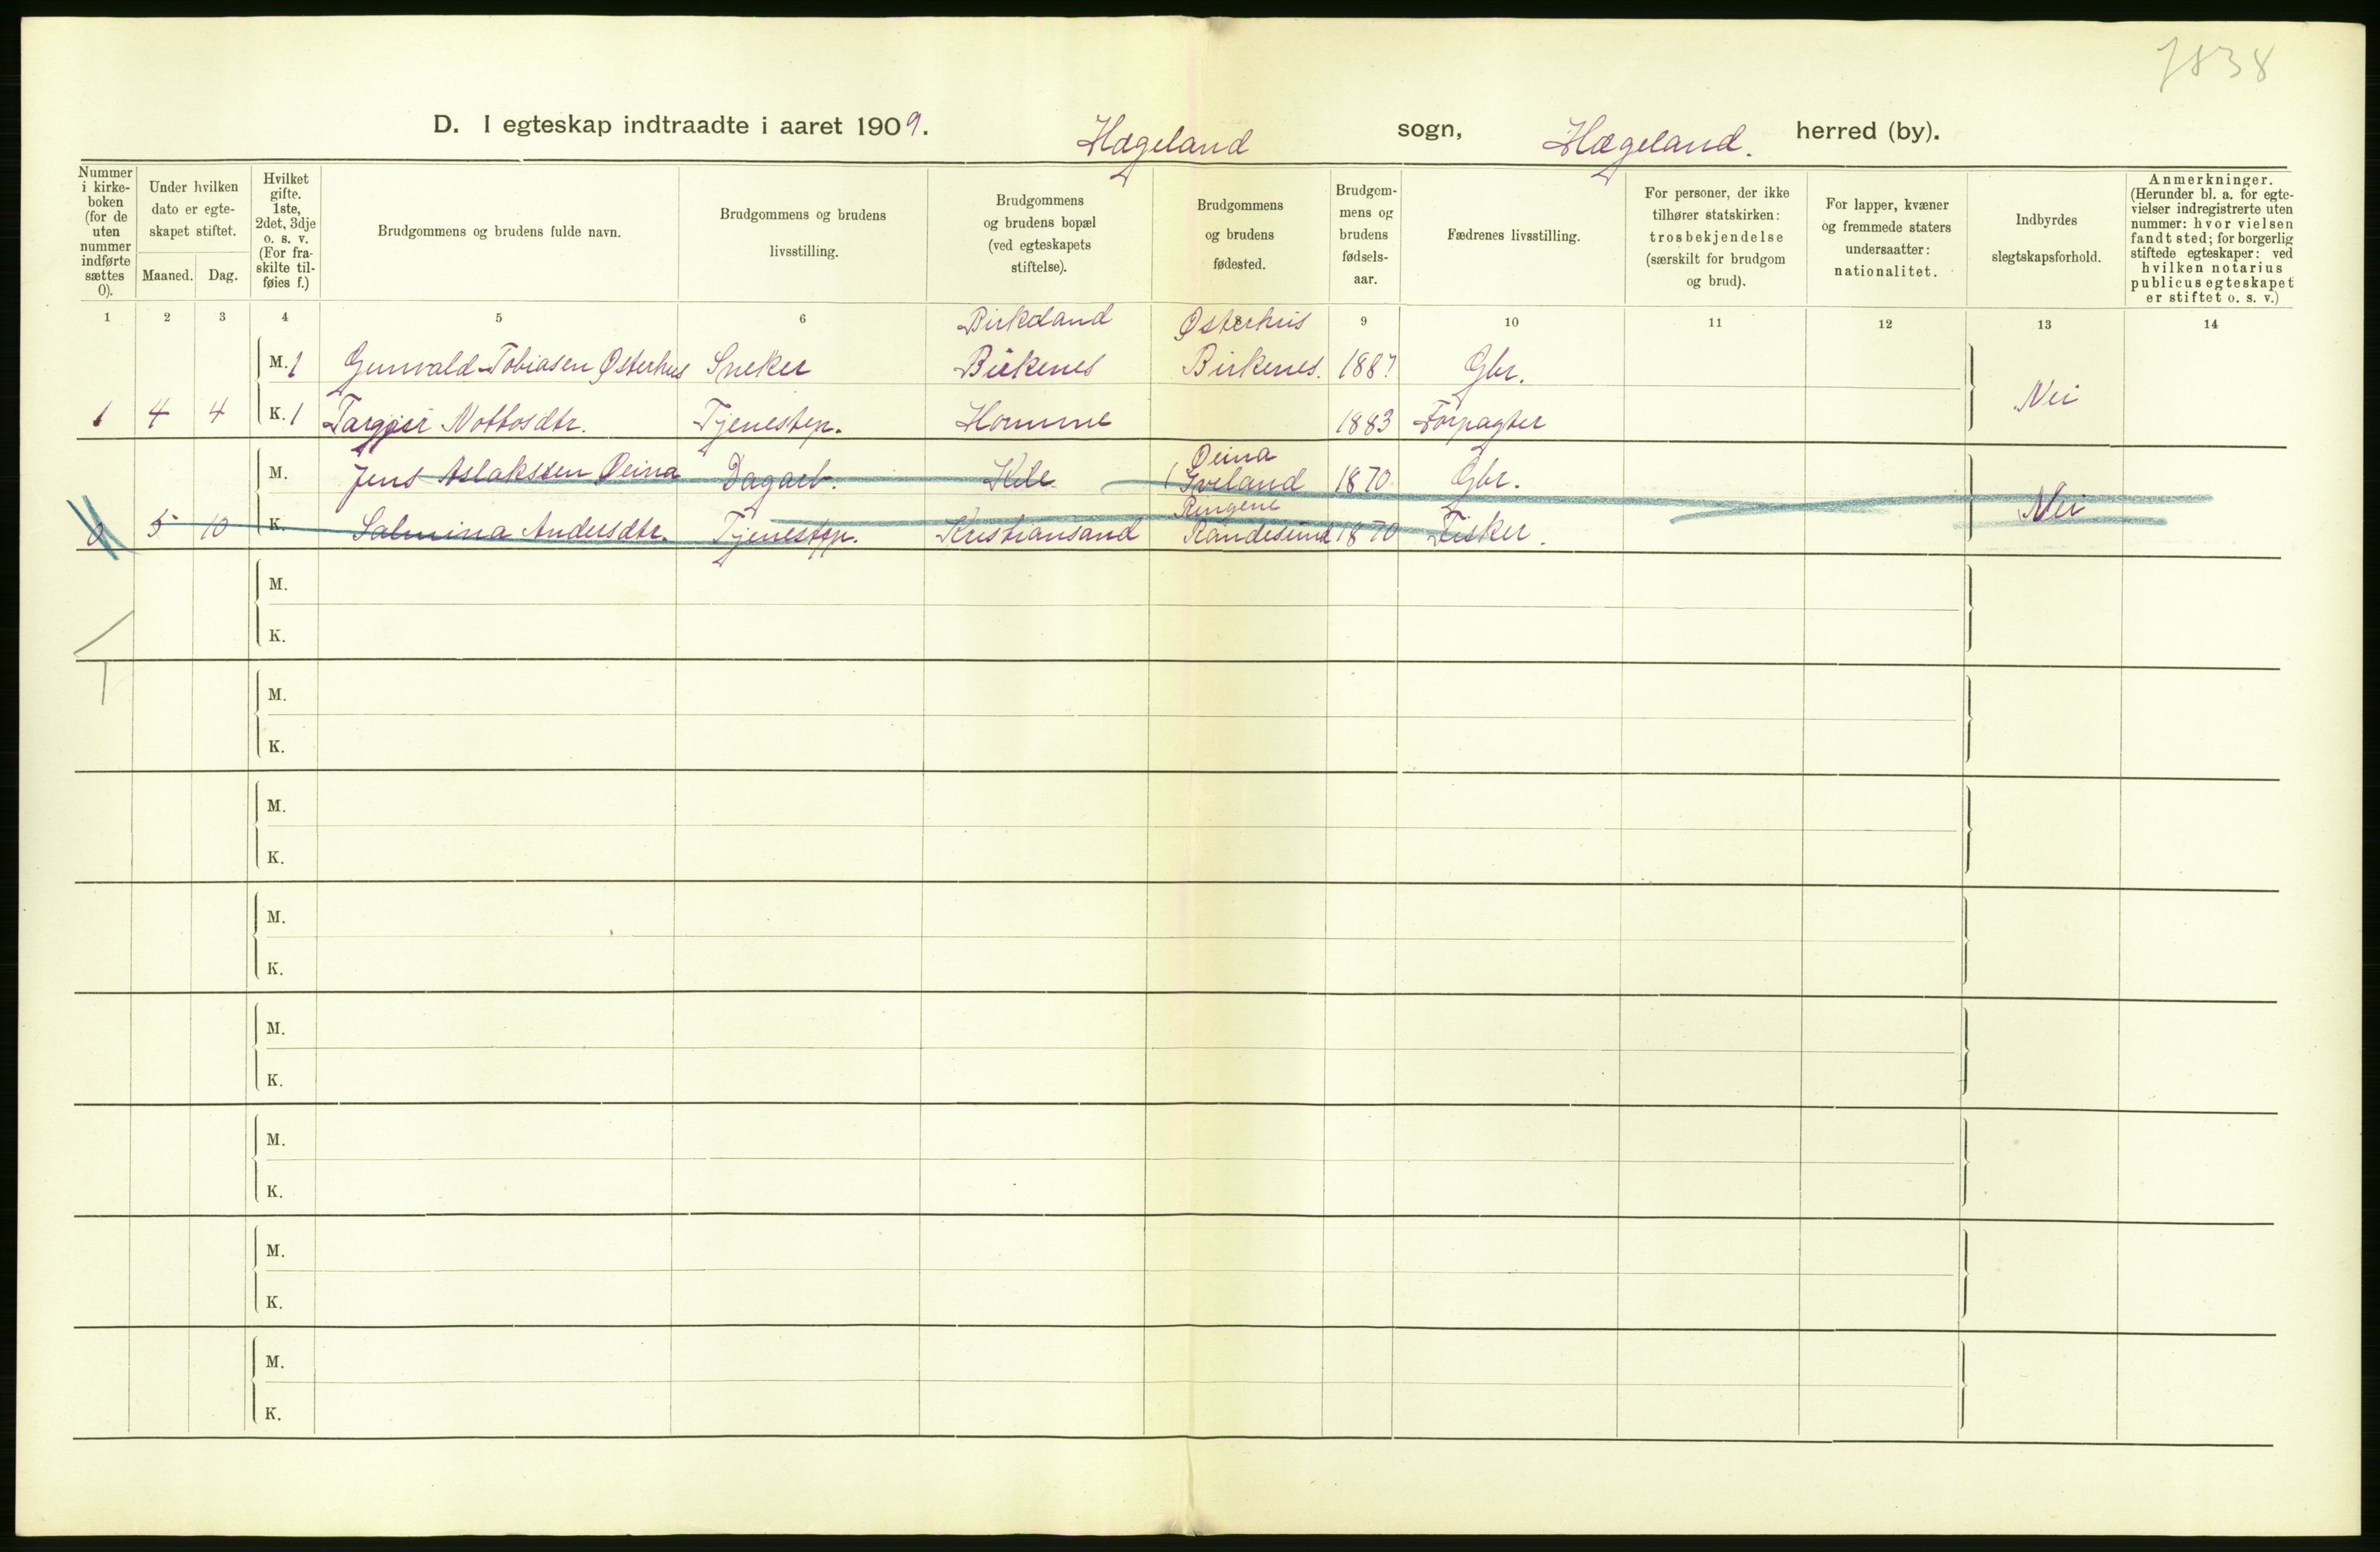 7838
D. I egteskap indtraadte i aaret 1909. Hægeland sogn, Hægeland. herred (by).
Nummer
i kirke-
boken
(for de
uten
nummer
indførte
sættes
0).
Under hvilken
dato er egte-
skapet stiftet.
Maaned. Dag.
Hvilket
gifte.
1ste,
2det, 3dje
o. s. v.
(For fra-
skilte til-
føies f.)
Brudgommens og brudens fulde navn.
Brudgommens og brudens
livsstilling.
Brudgommens
og brudens bopæl
(ved egteskapets
stiftelse).
Brudgommens
og brudens
fødested.
Brudgom-
mens og
brudens
fødsels-
aar.
Fædrenes livsstilling.
For personer, der ikke
tilhører statskirken:
trosbekjendelse
(særskilt for brudgom
og brud).
For lapper, kvæner
og fremmede staters
undersaatter:
nationalitet.
Indbyrdes
slegtskapsforhold.
Anmerkninger.
(Herunder bl. a. for egte-
vielser indregistrerte uten
nummer: hvor vielsen
fandt sted; for borgerlig
stiftede egteskaper: ved
hvilken notarius
publicus egteskapet
er stiftet o. s. v.)
1 2 3 4 5 6 7 8 9 10 11 12 13 14
Birkeland Østerhus
M. 1 Gunvald Tobiasen Østerhus Sneker Birkenes Birkenes. 1887 Gbr.
Nei
1 4 4 K. 1 Targjer Nottosdtr. Tjenestep. Homme 1883 Forpagter
Øeina
M. Jens Aslaksen Øeina Dagarb. Kile Iveland 1870 Gbr.
Ringene
Nei
0 5 10 K. Salmina Andersdtr. Tjenestep. Kristiansand Randesund 1870 Fisker.
M.
K.
M.
K.
M.
K.
M.
K.
M.
K.
M.
K.
M.
K.
M.
K.